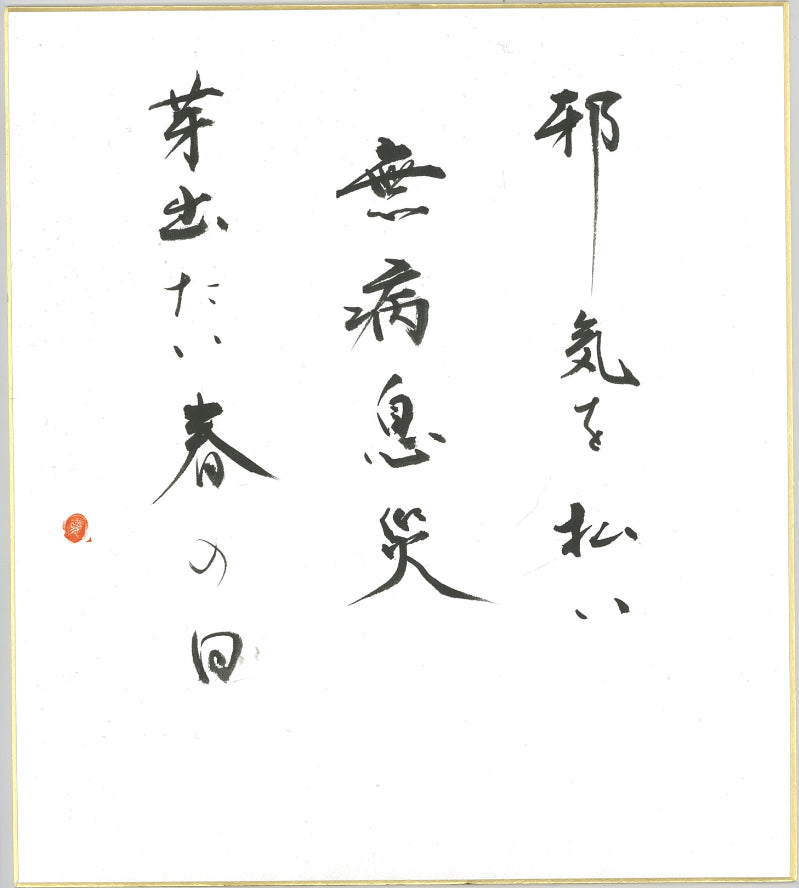 邪気を払い
無病息災
芽出たい春の日